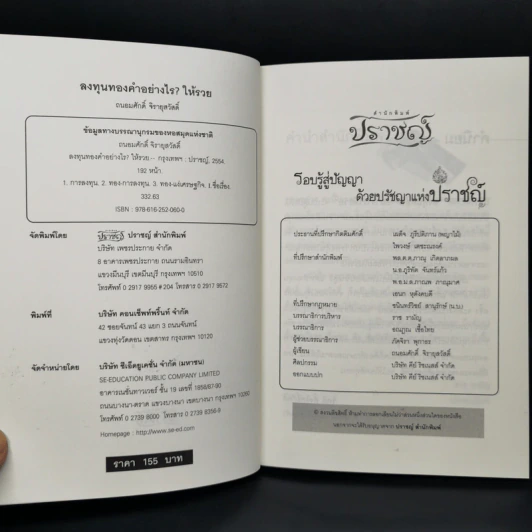 ลงทุนทองคำอย่างไร? ให้รวย
ถนอมศักดิ์ จิรายุสวัสดิ์
ข้อมูลทางบรรณานุกรมของหอสมุดแห่งชาติ
ถนอมศักดิ์ จิรายุสวัสดิ์
ลงทุนทองคำอย่างไร? ให้รวย.-- กรุงเทพฯ : ปราชญ์, 2554.
192 หน้า.
1. การลงทุน. 2. ทอง-การลงทุน. 3. ทอง-แง่เศรษฐกิจ. I. ชื่อเรื่อง.
332.63
ISBN : 978-616-252-060-0
จัดพิมพ์โดย ปราชญ์ ปราชญ์ สำนักพิมพ์
บริษัท เพชรประกาย จำกัด
8 อาคารเพชรประกาย ถนนรามอินทรา
แขวงมีนบุรี เขตมีนบุรี กรุงเทพฯ 10510
โทรศัพท์ 0 2917 9955 # 204 โทรสาร 0 2917 9572
พิมพ์ที่ บริษัท คอนเซ็พท์พริ้นท์ จำกัด
42 ซอยจันทน์ 43 แยก 3 ถนนจันทน์
แขวงทุ่งวัดดอน เขตสาทร กรุงเทพฯ 10120
จัดจำหน่ายโดย บริษัท ซีเอ็ดยูเคชั่น จำกัด (มหาชน)
SE-EDUCATION PUBLIC COMPANY LIMITED
อาคารเนชั่นทาวเวอร์ ชั้น 19 เลขที่ 1858/87-90
ถนนบางนา-ตราด แขวงบางนา เขตบางนา กรุงเทพฯ
โทรศัพท์ 0 2739 8000 โทรสาร 0 2739 8356-9
Homepage : http://www.se-ed.com
ราคา 155 บาท
สำนักพิมพ์
ปราชญ์
รอบรู้สู่ปัญญา
ด้วยปรัชญาแห่งปราชญ์
ประธานที่ปรึกษากิตติมศักดิ์
ไพวงษ์ เตชะณรงค์
ที่ปรึกษาสำนักพิมพ์
ที่ปรึกษากฎหมาย
บรรณาธิการบริหาร ราช รามัญ
บรรณาธิการ
ผู้ช่วยบรรณาธิการ
ผู้เขียน ถนอมศักดิ์ จิรายุสวัสดิ์
ศิลปกรรม บริษัท คีย์ รีซเลสส์ จำกัด
ออกแบบปก บริษัท คีย์ รีซเลสส์ จำกัด
นอกจากจะได้รับอนุญาตจาก ปราชญ์ สำนักพิมพ์